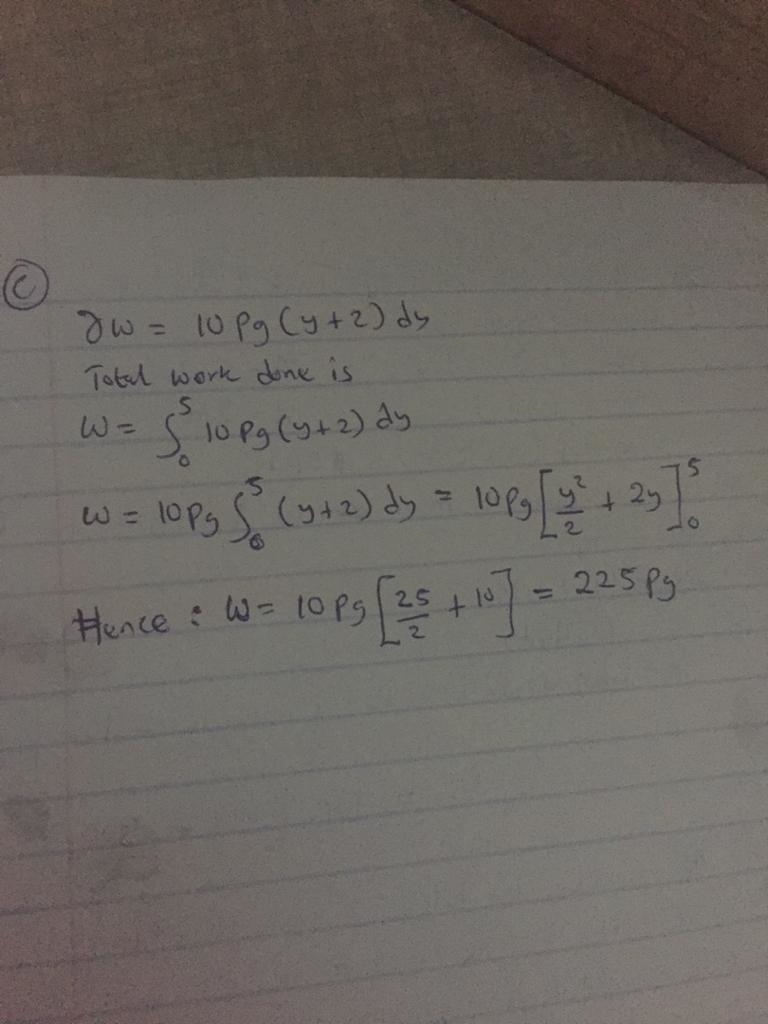 (C)
∂w = 10 Pg (y+2) dy
Total work done is
W = ∫₀⁵ 10 Pg (y+2) dy
W = 10 Pg ∫₀⁵ (y+2) dy = 10 Pg [y²/2 + 2y]₀⁵
Hence : W = 10 Pg [25/2 + 10] = 225 Pg